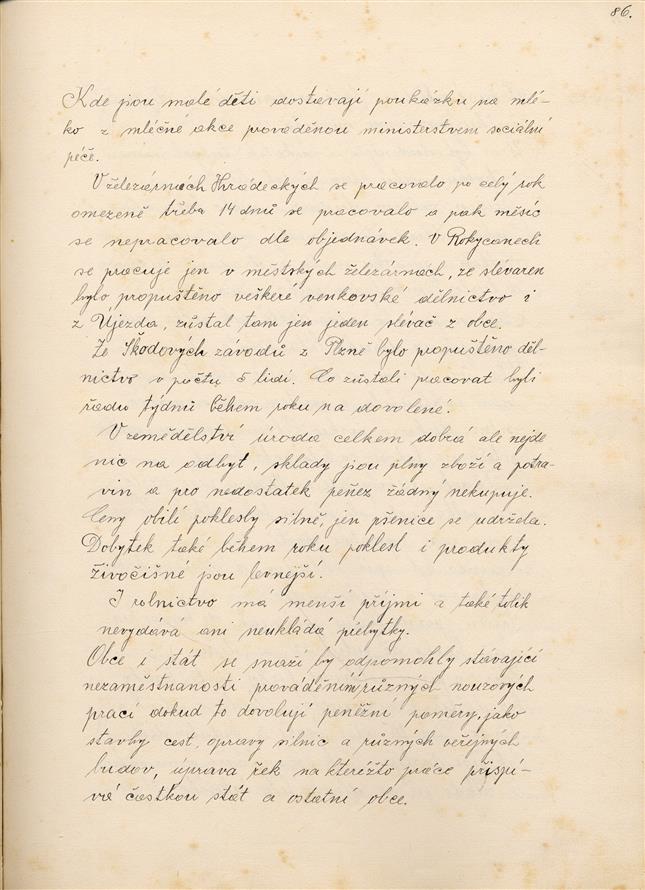 86.
Kde jsou malé děti dostavají poukázku na mlé-
ko z mléčné akce prováděnou ministerstvem sociální
péče.
V železárnách Hrádeckých se pracovalo po celý rok
omezeně třeba 14 dnů se pracovalo a pak měsíc
se nepracovalo dle objednávek. V Rokycanech
se pracuje jen v městských železárnach, ze slévaren
bylo propuštěno veškeré venkovské dělnictvo i
z Újezda, zůstal tam jen jeden slévač z obce.
Ze Škodových závodů z Plzně bylo propuštěno děl-
nictvo v počtu 5 lidí. Co zůstali pracovat byli
řadu týdnů během roku na dovolené.
V zemědělství úroda celkem dobrá ale nejde
nic na odbyt, sklady jsou plny zboží a potra-
vin a pro nedostatek peněz žádný nekupuje.
Ceny obilí poklesly silně, jen pšenice se udržela.
Dobytek také během roku poklesl i produkty
živočišné jsou levnejší.
I rolnictvo má menší příjmi a také tolik
nevydává ani neukládá přebytky.
Obce i stát se snaží by odpomohly stávající
nezaměstnanosti prováděním různých nouzových
prací dokud to dovolují peněžní poměry, jako
stavby cest, opravy silnic a různých veřejných
budov, úprava řek na kteréžto práce přispí-
vá částkou stát a ostatní obce.